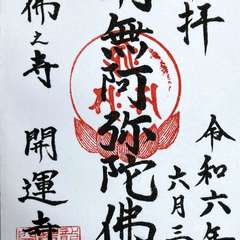 拝
令和六年
六月三
南無阿弥陀佛
佛之寺
開運寺